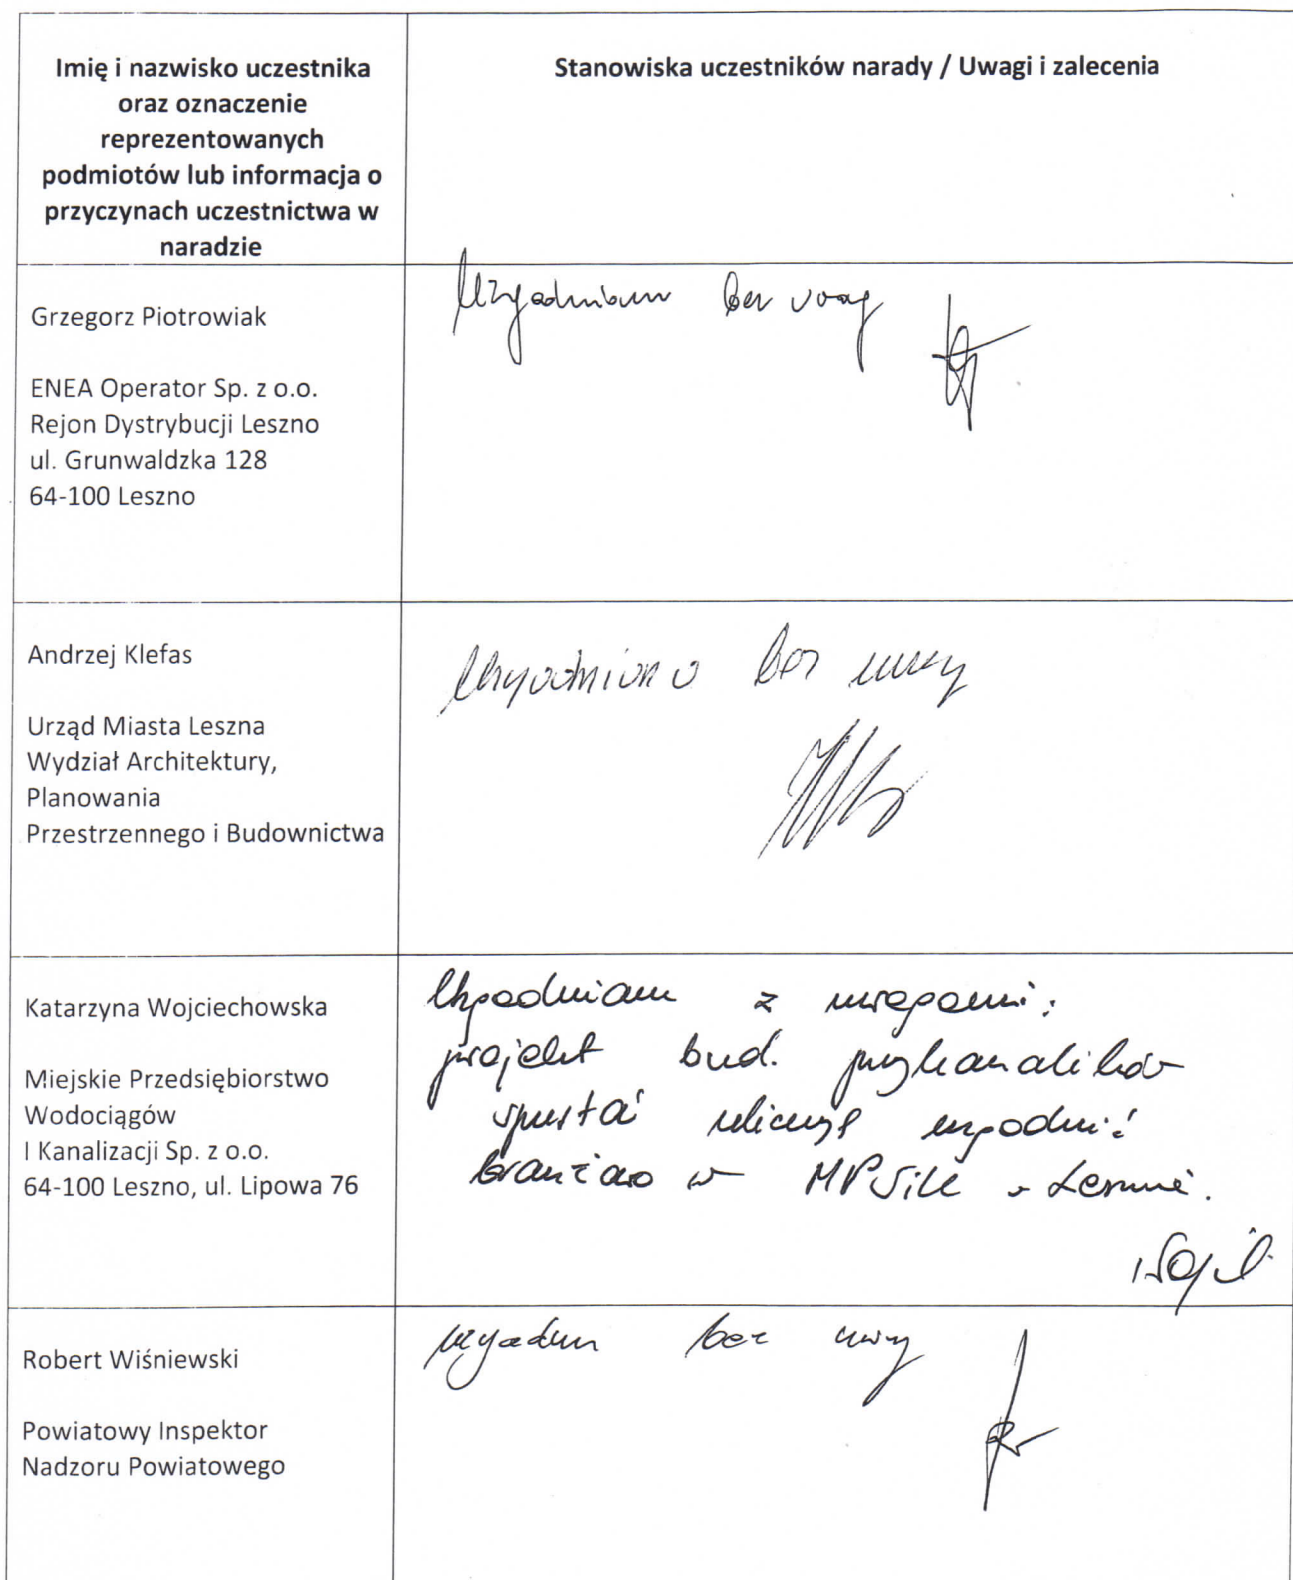 Imię i nazwisko uczestnika
oraz oznaczenie
reprezentowanych
podmiotów lub informacja o
przyczynach uczestnictwa w
naradzie
Stanowiska uczestników narady / Uwagi i zalecenia
Grzegorz Piotrowiak
ENEA Operator Sp. z o.o.
Rejon Dystrybucji Leszno
ul. Grunwaldzka 128
64-100 Leszno
Uzgadniam bez uwag
Andrzej Klefas
Urząd Miasta Leszna
Wydział Architektury,
Planowania
Przestrzennego i Budownictwa
Uzgodniono bez uwag
Katarzyna Wojciechowska
Miejskie Przedsiębiorstwo
Wodociągów
I Kanalizacji Sp. z o.o.
64-100 Leszno, ul. Lipowa 76
Uzgadniam z uwagami:
projekt bud. przykanalików
uzgodnić
branżowo w MPWiK w Lesznie.
Robert Wiśniewski
Powiatowy Inspektor
Nadzoru Powiatowego
uzgadm bez uwag